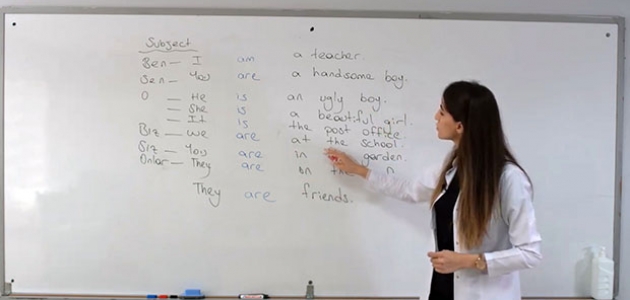 Subject
Ben — I am a teacher.
Sen — You are a handsome boy.
O — He is an ugly boy.
— She is a beautiful girl.
— It is the post office
Biz — We are at the school.
Siz — You are in garden.
Onlar — They are on the
They are friends.